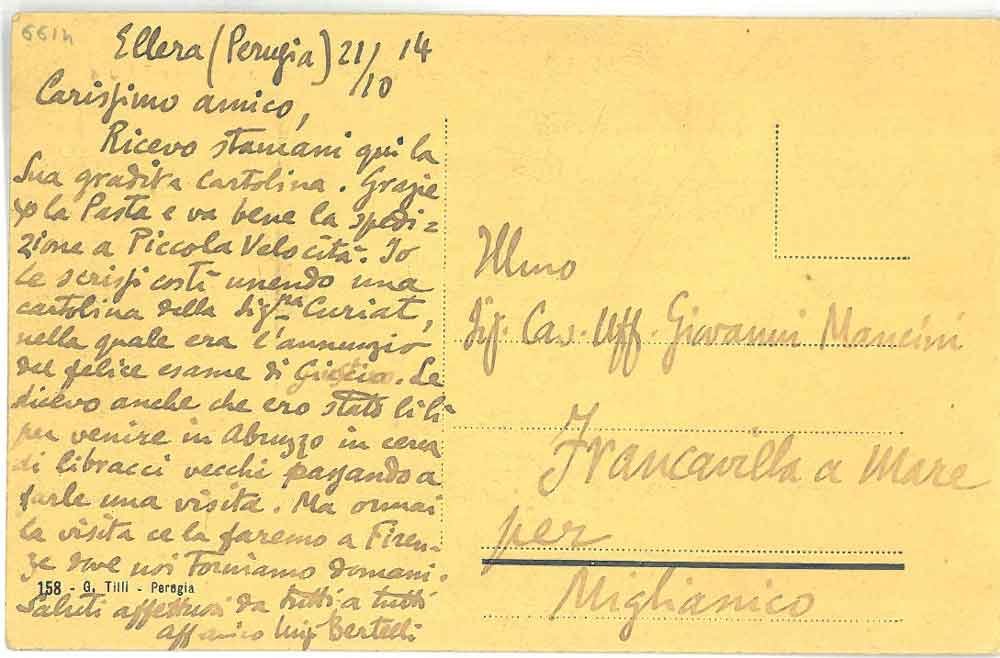 5514
Ellera (Perugia) 21/10 14
Carissimo amico,
Ricevo stamani qui la
Sua gradita cartolina. Grazie
per la Pasta e va bene la spedi=
zione a Piccola Velocità. Io
le scrissi costì unendo una
cartolina della Sig.na Curiat,
nella quale era l'annunzio
del felice esame di
Le
dicevo anche che ero stato lì lì
per venire in Abruzzo in cerca
di libracci vecchi passando a
farle una visita. Ma ormai
la visita ce la faremo a Firen-
ze dove noi torniamo domani.
158 - G. Tilli - Perugia
Saluti affettuosi da tutti a tutti
aff amico Luigi Bertelli
Illmo
Sig. Cav. Uff. Giovanni Mancini
Francavilla a Mare
per
Miglianico